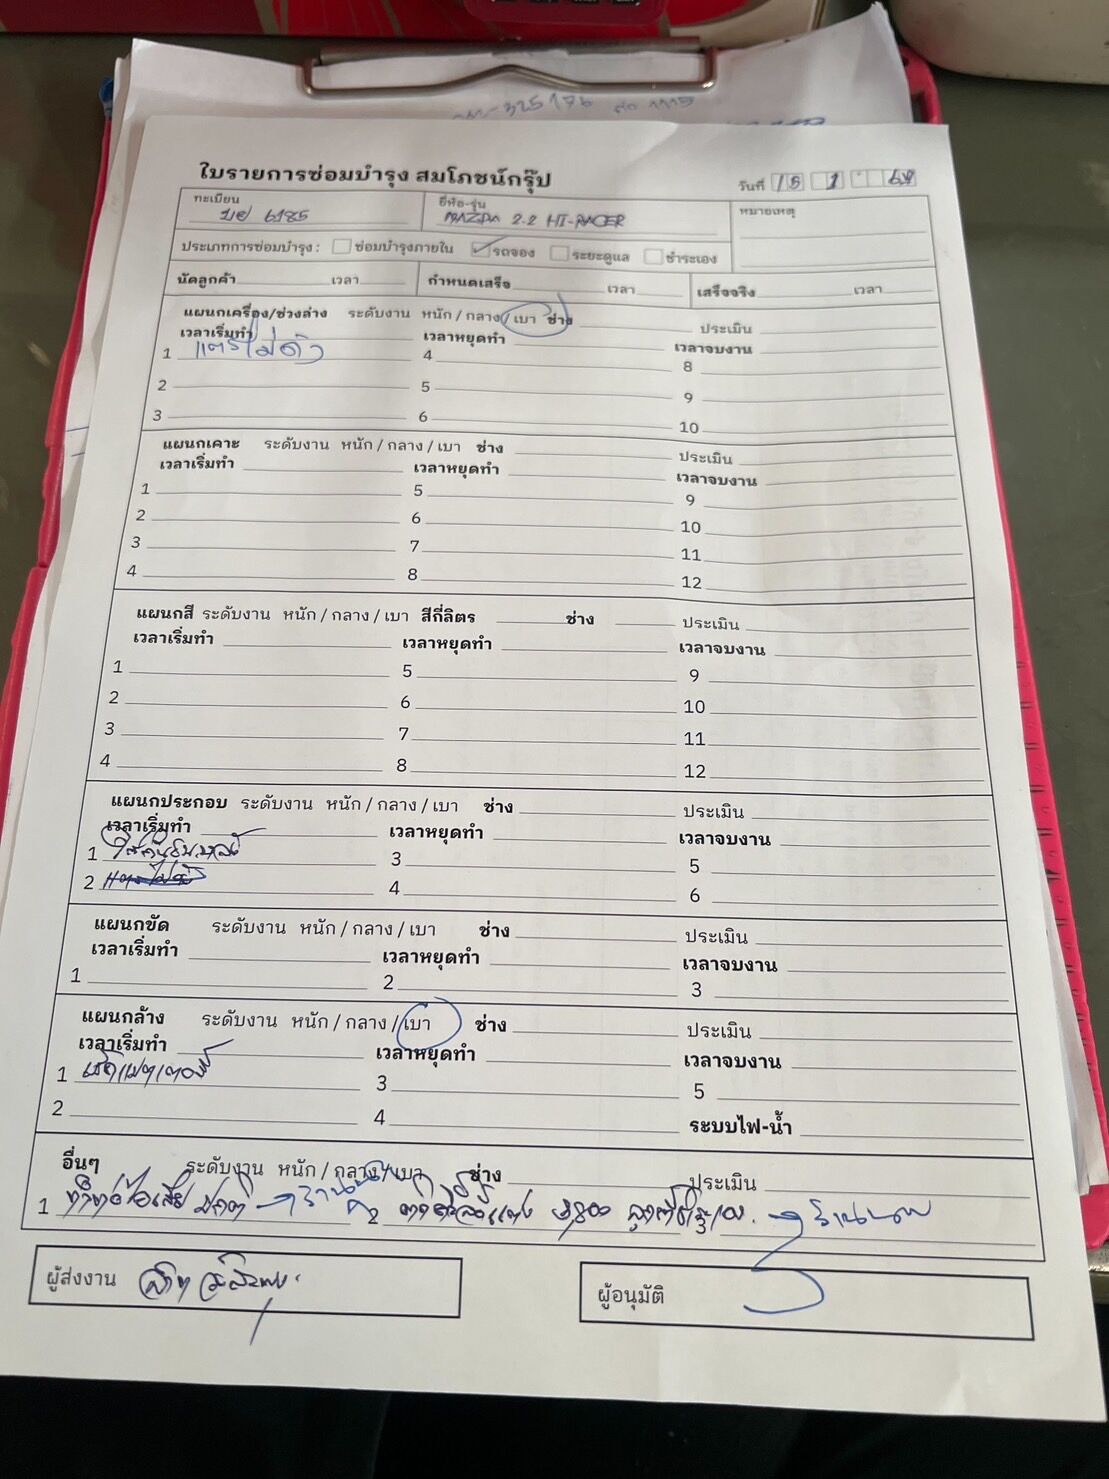 ใบรายการซ่อมบำรุง สมโภชน์กรุ๊ป
วันที่ 15 1 68
ทะเบียน 6185
ยี่ห้อ-รุ่น MAZDA 2.2 HI-RACER
หมายเหตุ
ประเภทการซ่อมบำรุง : ซ่อมบำรุงภายใน รถจอง ระยะดูแล ชำระเอง
นัดลูกค้า เวลา กำหนดเสร็จ เวลา เสร็จจริง เวลา
แผนกเครื่อง/ช่วงล่าง ระดับงาน หนัก / กลาง / เบา ช่าง ประเมิน
เวลาเริ่มทำ เวลาหยุดทำ เวลาจบงาน
1 แตรไม่ดัง 4 8
2 5 9
3 6 10
แผนกเคาะ ระดับงาน หนัก / กลาง / เบา ช่าง ประเมิน
เวลาเริ่มทำ เวลาหยุดทำ เวลาจบงาน
1 5 9
2 6 10
3 7 11
4 8 12
แผนกสี ระดับงาน หนัก / กลาง / เบา สีกี่ลิตร ช่าง ประเมิน
เวลาเริ่มทำ เวลาหยุดทำ เวลาจบงาน
1 5 9
2 6 10
3 7 11
4 8 12
แผนกประกอบ ระดับงาน หนัก / กลาง / เบา ช่าง ประเมิน
เวลาเริ่มทำ เวลาหยุดทำ เวลาจบงาน
1 3 5
2 แตรไม่ดัง 4 6
แผนกขัด ระดับงาน หนัก / กลาง / เบา ช่าง ประเมิน
เวลาเริ่มทำ เวลาหยุดทำ เวลาจบงาน
1 2 3
แผนกล้าง ระดับงาน หนัก / กลาง / เบา ช่าง ประเมิน
เวลาเริ่มทำ เวลาหยุดทำ เวลาจบงาน
1 เช็คแบตเตอรี่ 3 5
2 4 ระบบไฟ-น้ำ
อื่นๆ ระดับงาน หนัก / กลาง / เบา ช่าง ประเมิน
1 ทำท่อไอเสีย 2 3
ผู้ส่งงาน
ผู้อนุมัติ